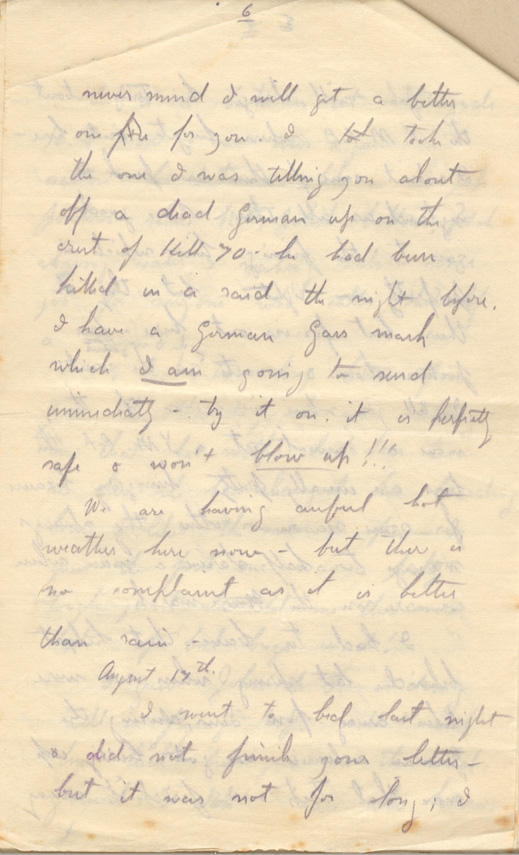 6
never mind I will get a better
one for you. I took
the one I was telling you about
off a dead German up on the
crest of Hill 70 he had been
killed in a raid the night before.
I have a German Gass mask
which I am going to send
immediatly - try it on. it is perfectly
safe & won't blow up!!!
We are having awful hot
weather here now - but there is
no complaint as it is better
than rain -
August 17th.
I went to bed last night
& did not finish your letter -
but it was not for long, I